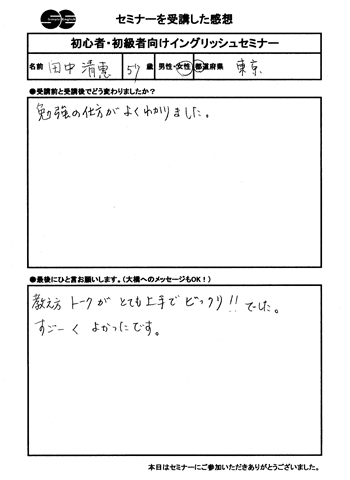 セミナーを受講した感想
初心者・初級者向けイングリッシュセミナー
名前 田中 清恵 57 歳 男性・女性 都道府県 東京
●受講前と受講後でどう変わりましたか？
勉強の仕方がよくわかりました。
●最後にひと言お願いします。（大橋へのメッセージもOK！）
教え方 トークが とても上手で ビックリ!! でした。
すごーく よかったです。
本日はセミナーにご参加いただきありがとうございました。